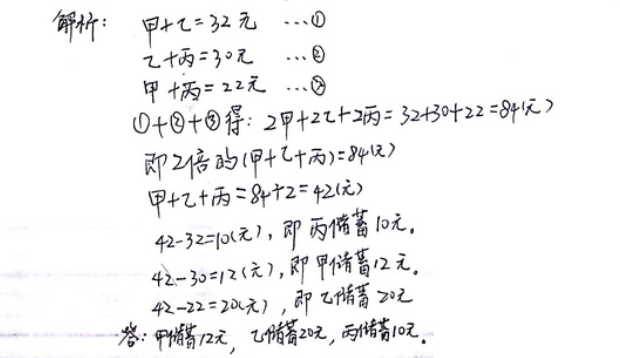 解析: 甲+乙=32元 …①
乙+丙=30元 …②
甲+丙=22元 …③
①+②+③得: 2甲+2乙+2丙=32+30+22=84(元)
即2倍的(甲+乙+丙)=84(元)
甲+乙+丙=84÷2=42(元)
42-32=10(元), 即丙储蓄10元。
42-30=12(元), 即甲储蓄12元。
42-22=20(元), 即乙储蓄20元
答: 甲储蓄12元, 乙储蓄20元, 丙储蓄10元。